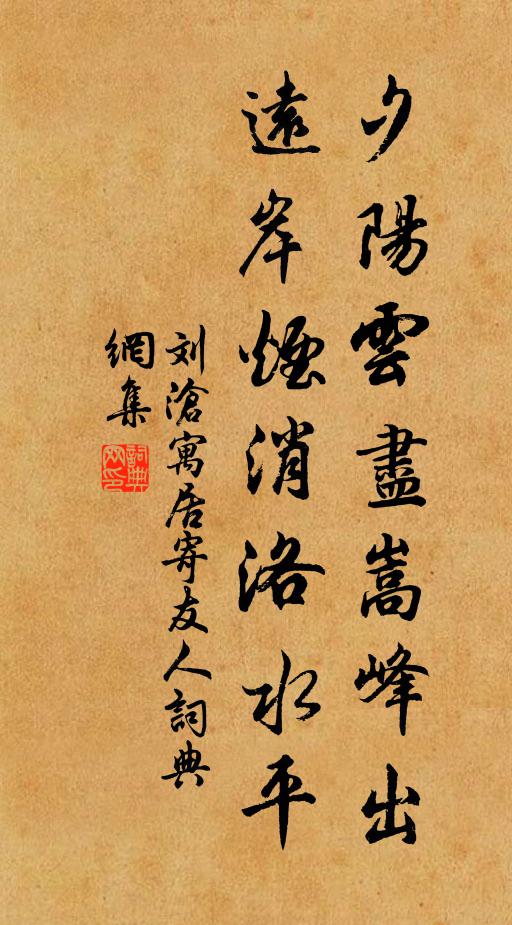 夕陽雲盡嵩峰出
遠岸煙消洛水平
刘滄寓居寄友人詞典
網集
詞典
網印